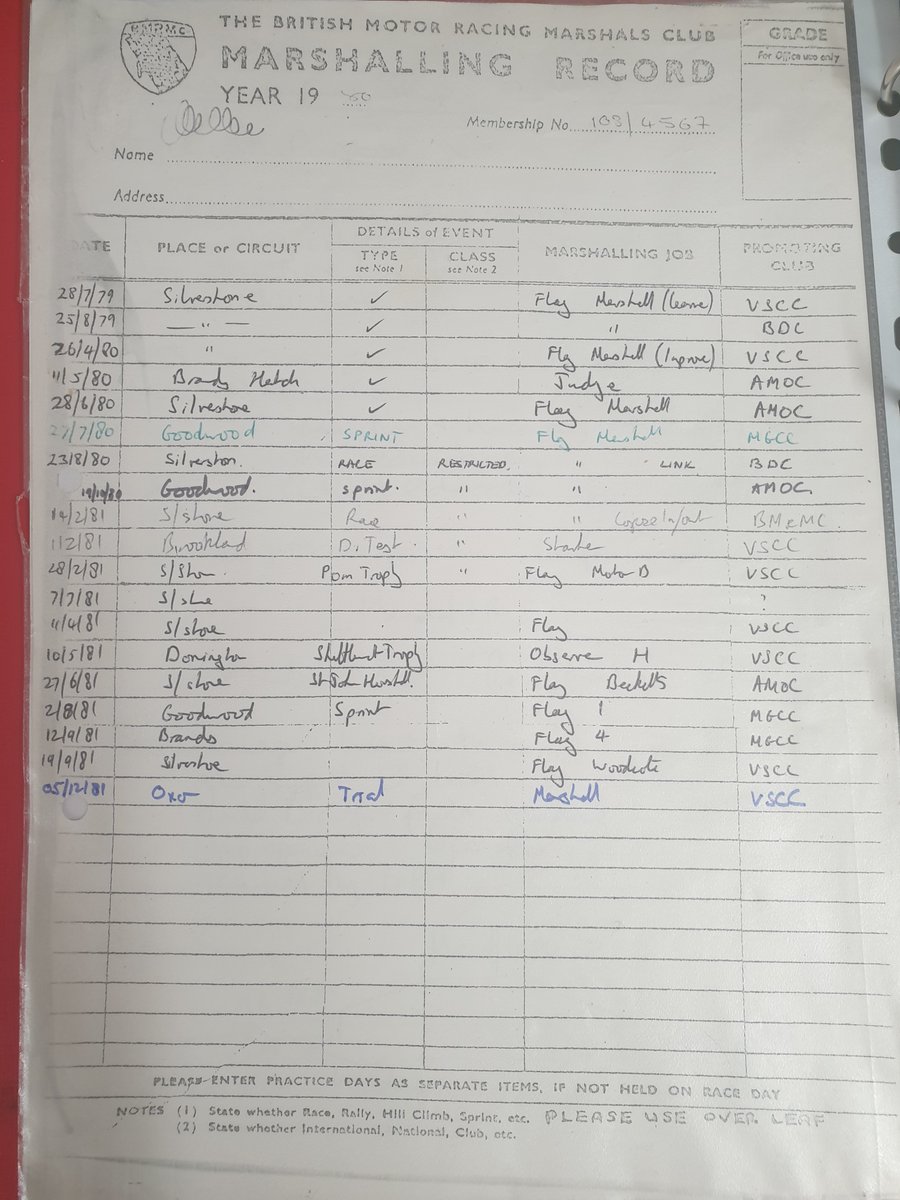 BMRMC
THE BRITISH MOTOR RACING MARSHALS CLUB
MARSHALLING RECORD
YEAR 19 80
GRADE
For Office use only
Membership No. 103/4567
Name
Address
DATE PLACE or CIRCUIT DETAILS of EVENT MARSHALLING JOB PROMOTING CLUB
TYPE see Note 1 CLASS see Note 2
28/7/79 Silverstone ✓ Flag Marshall (learner) VSCC
25/8/79 — " — ✓ " BDC
26/4/80 " ✓ Flag Marshall VSCC
11/5/80 Brands Hatch ✓ Judge AMOC
28/6/80 Silverstone ✓ Flag Marshall AMOC
27/7/80 Goodwood SPRINT Flag Marshall MGCC
23/8/80 Silverston. RACE RESTRICTED " LINK BDC
19/10/80 Goodwood. Sprint. " " AMOC
14/2/81 S/stone Race " " Copse In/out BMRMC
1/2/81 Brookland D. Test " Starter VSCC
28/2/81 S/Ston Pom Trophy " Flag Motor B VSCC
7/7/81 S/stne ?
11/4/81 S/stone Flag VSCC
10/5/81 Donington Trophy Observe H VSCC
27/6/81 S/stone St John Horsfall Flag Becketts AMOC
2/8/81 Goodwood Sprint Flag 1 MGCC
12/9/81 Brands Flag 4 MGCC
19/9/81 Silverstone Flag Woodcote VSCC
05/12/81 Trial Marshall VSCC
PLEASE ENTER PRACTICE DAYS AS SEPARATE ITEMS, IF NOT HELD ON RACE DAY
NOTES (1) State whether Race, Rally, Hill Climb, Sprint, etc. PLEASE USE OVER LEAF
(2) State whether International, National, Club, etc.